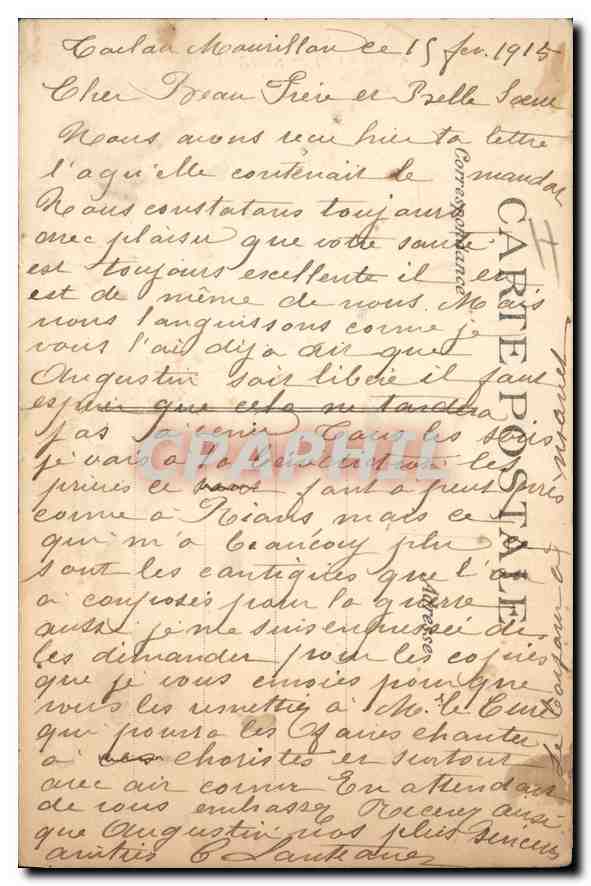 Toulon Mourillon ce 15 fev. 1915
Cher Beau Frère et Belle Sœur
Nous avons recu hier ta lettre
l'aqu'elle contenait le mandat
Nous constatons toujours
avec plaisir que votre santé
est toujours excellente il en
est de même de nous. Mais
nous languissons comme je
vous l'ai dija dit que
Augustin soit libéré il faut
esperer que cela ne tardera
pas à venir Tous les soirs
je vais à la bénédiction les
prieres ce font a peut près
comme à Rians, mais ce
qui m'a beaucoup plu ce
sont les cantiques que l'on
a composés pour la guerre
aussi je me suis empressée de
les demander pour les copies
que je vous envoies pour que
vous les remettiez à Mr le Curé
qui pourra les faires chanter
à choristes et surtout
avec air connu En attendant
de vous embrasser Recevez ainsi
que Augustin nos plus sincères
amitiés C
CARTE POSTALE
Correspondance
Adresse
CPAPHIL